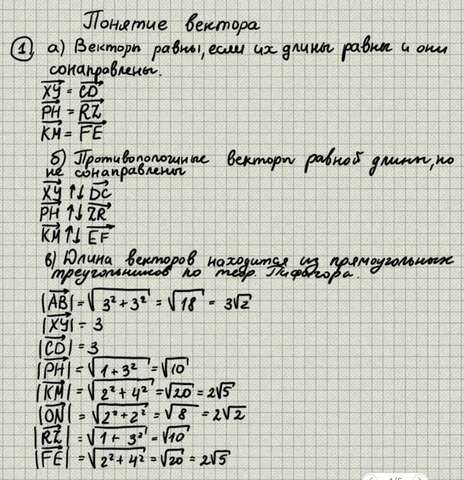 Понятие вектора
1 а) Векторы равны, если их длины равны и они
сонаправлены.
XY = CD
PH = RZ
KM = FE
б) Противоположные векторы равной длины, но
не сонаправлены
XY ↑↓ DC
PH ↑↓ ZR
KM ↑↓ EF
в) Длина векторов находится из прямоугольных
треугольников по теор. Пифагора.
|AB| = √3²+3² = √18 = 3√2
|XY| = 3
|CD| = 3
|PH| = √1+3² = √10
|KM| = √2²+4² = √20 = 2√5
|ON| = √2²+2² = √8 = 2√2
|RZ| = √1+3² = √10
|FE| = √2²+4² = √20 = 2√5